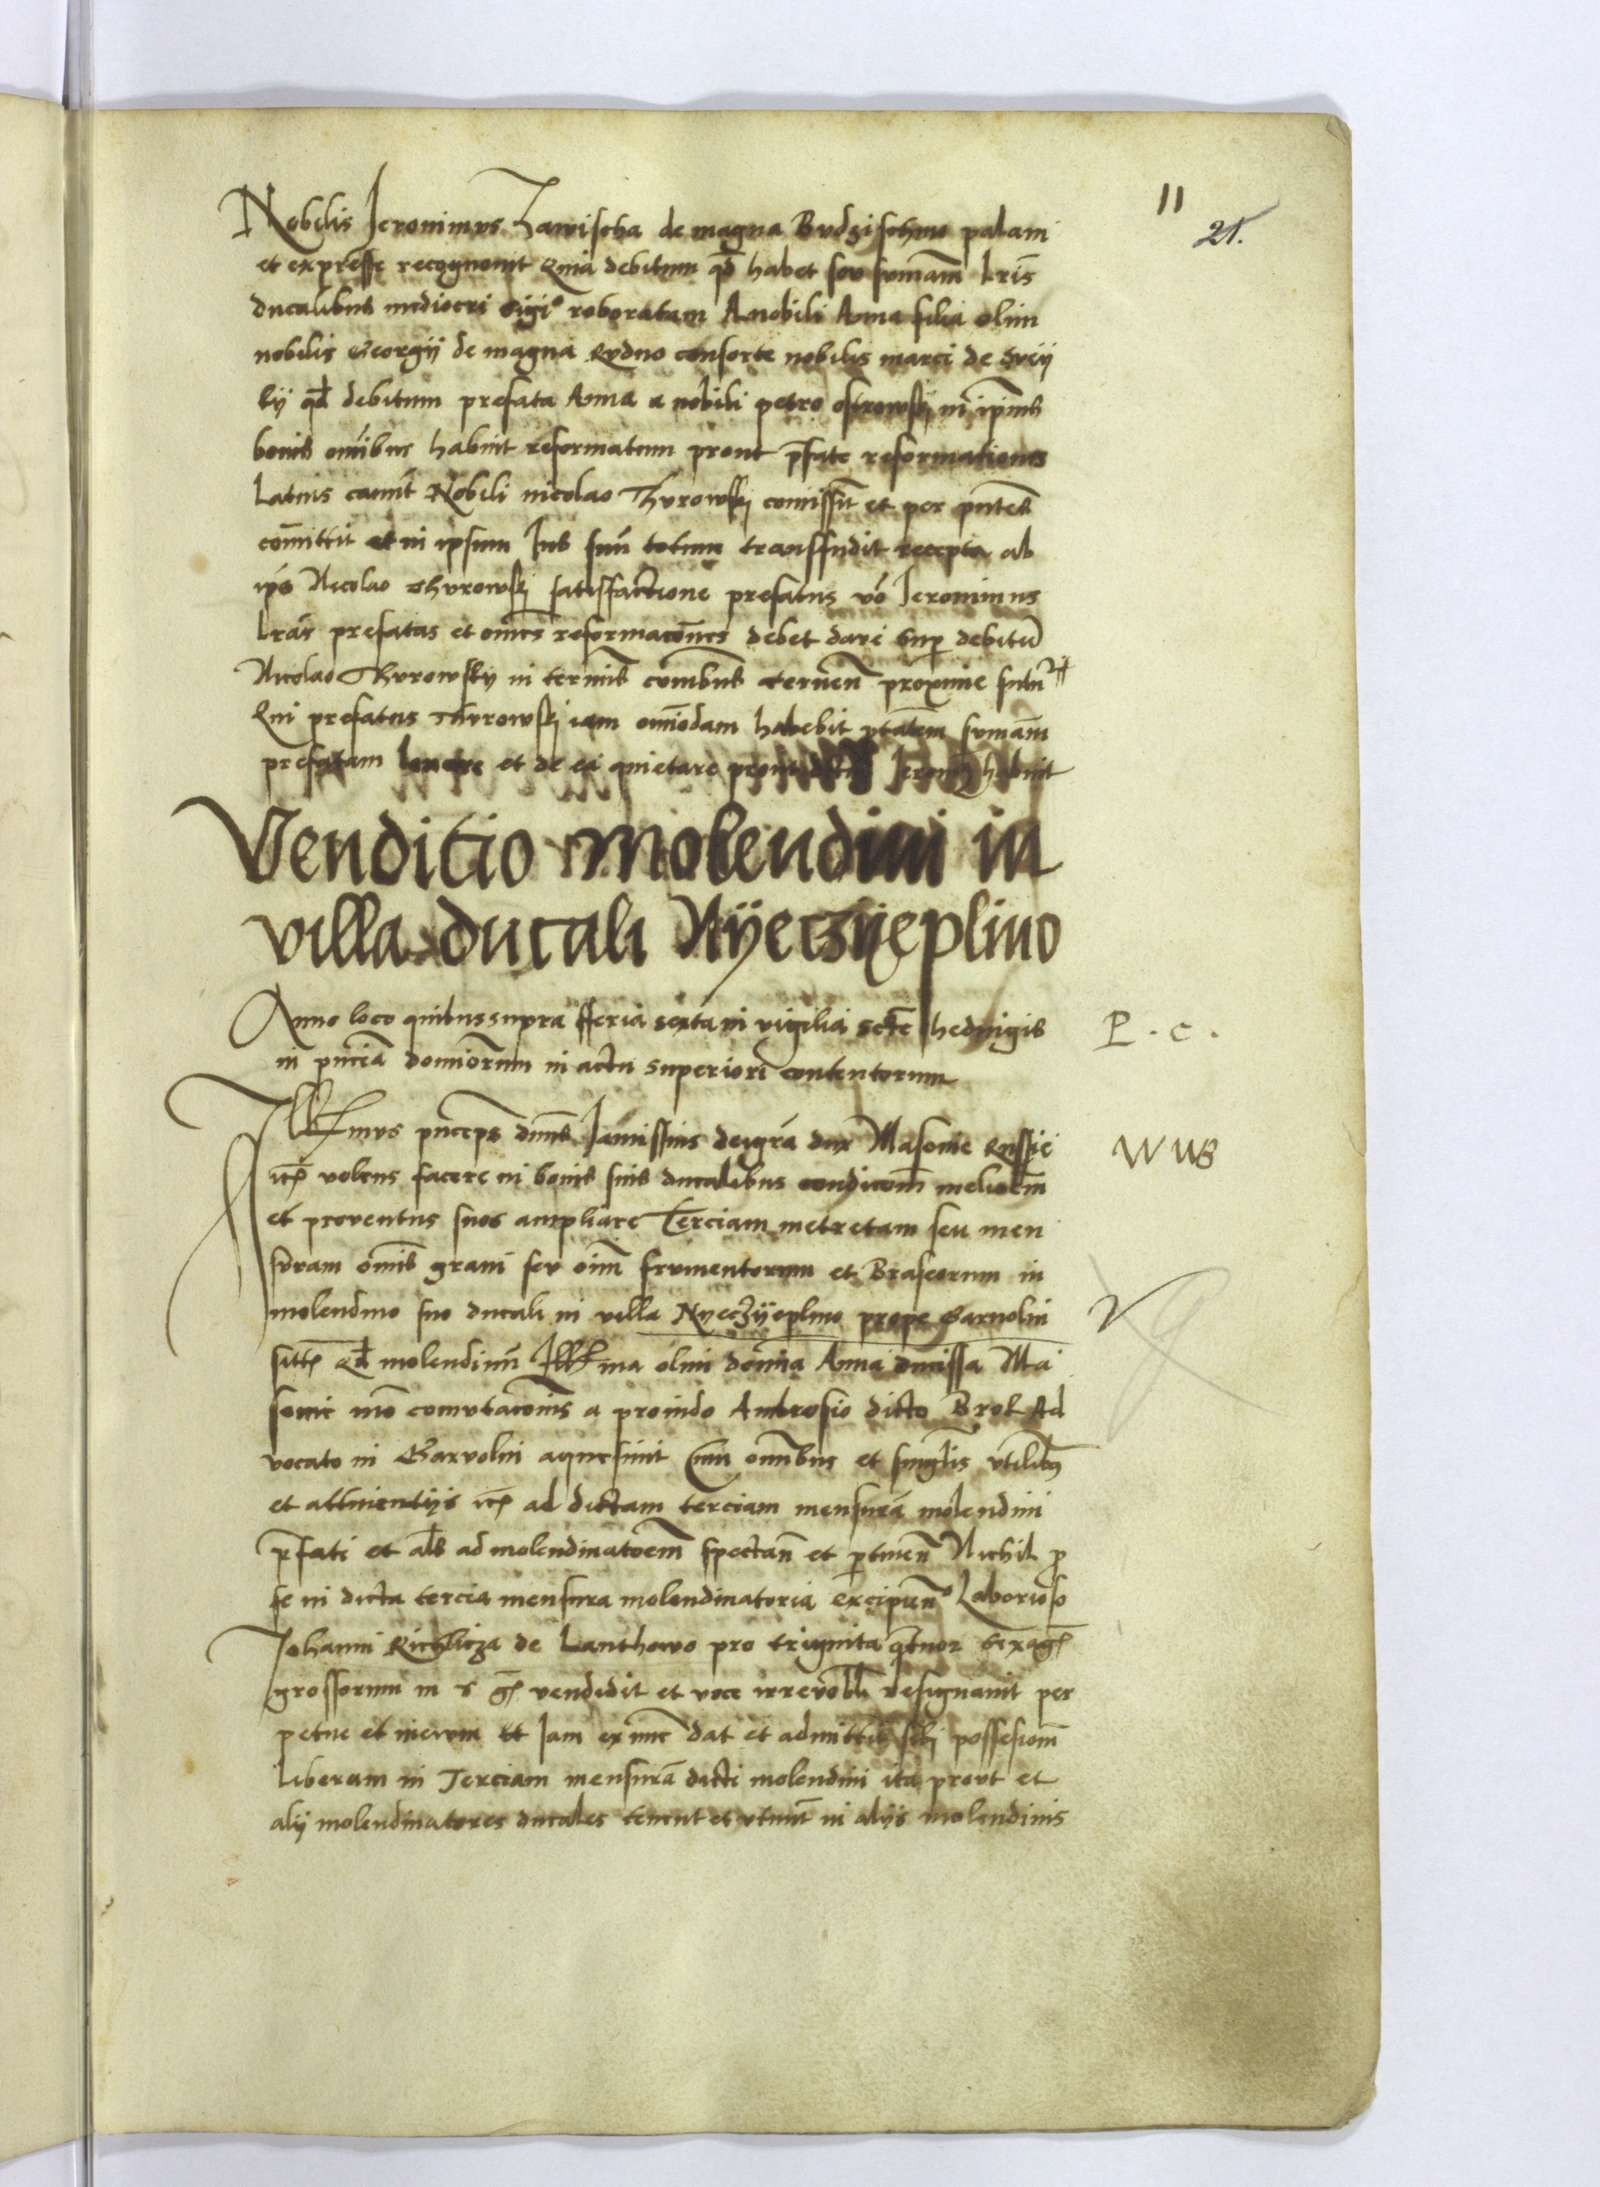 11
21.
Nobilis Jeronimus Zawischa de magna Budzischino palam
et expresse recognouit Quia debitum qd habet seu summam lris
ducalibus mediocri sigio roboratam A nobili Anna filia olim
nobilis Georgii de magna Rudno consorte nobilis marci de
qd debitum prefata Anna a nobili petro ostrowski in ipius
bonis omibus habuit reformatum prout pfate reformationes
Latius canut Nobili nicolao Thurowski comissit et per pntes
comittit et in ipsum Jus suu totum transfudit recepta ab
ipo Nicolao Thurowski satisfactione prefatus vo Jeronimus
lras prefatas et omes reformacones debet dari sup debitu
Nicolao Thurowsky in termis comibus Cernen proxime futur
Qui prefatus Thurowski iam omiodam habebit ptatem summam
prefatam leuare et de ea quietare prout Jeronimus habuit
Venditio molendini in
villa ducali Nyeczyeplino
Anno loco quibus supra fferia sexta in vigilia scte hedwigis
P . c .
in pncia dominorum in actu superiori contentorum
Illmus princeps dnus Janussius dei gra dux Masouie Russie
W WB
etc volens facere in bonis suis ducalibus condicom meliorem
et proventus suos ampliare Terciam metretam seu men
suram omis grani seu oim frumentorum et Braseorum in
molendino suo ducali in villa Nyeczyeplino prope Garvolin
sitt Qd molendinu Illma olim domina Anna ducissa Ma
souie mo comutacionis a prouido Ambrosio dicto Brol Ad
vocato in Garvolin aquesiuit Cum omibus et singulis vtilitb
et attinentiis etc ad dictam terciam mensura molendini
pfati et als ad molendinatorem spectan et ptinen Nichil p
se in dicta tercia mensura molendinatoria excipien Laborioso
Johanni Richlicza de Lanthowo pro triginta qtuor sexag
grossorum in vendidit et voce irreuobli resignauit per
petue et in euum Et Jam ex nunc dat et admittit sibi possesionem
liberam in Terciam mensura dicti molendini ita prout et
alij molendinatores ducales tenent et vtunt in aliis molendinis